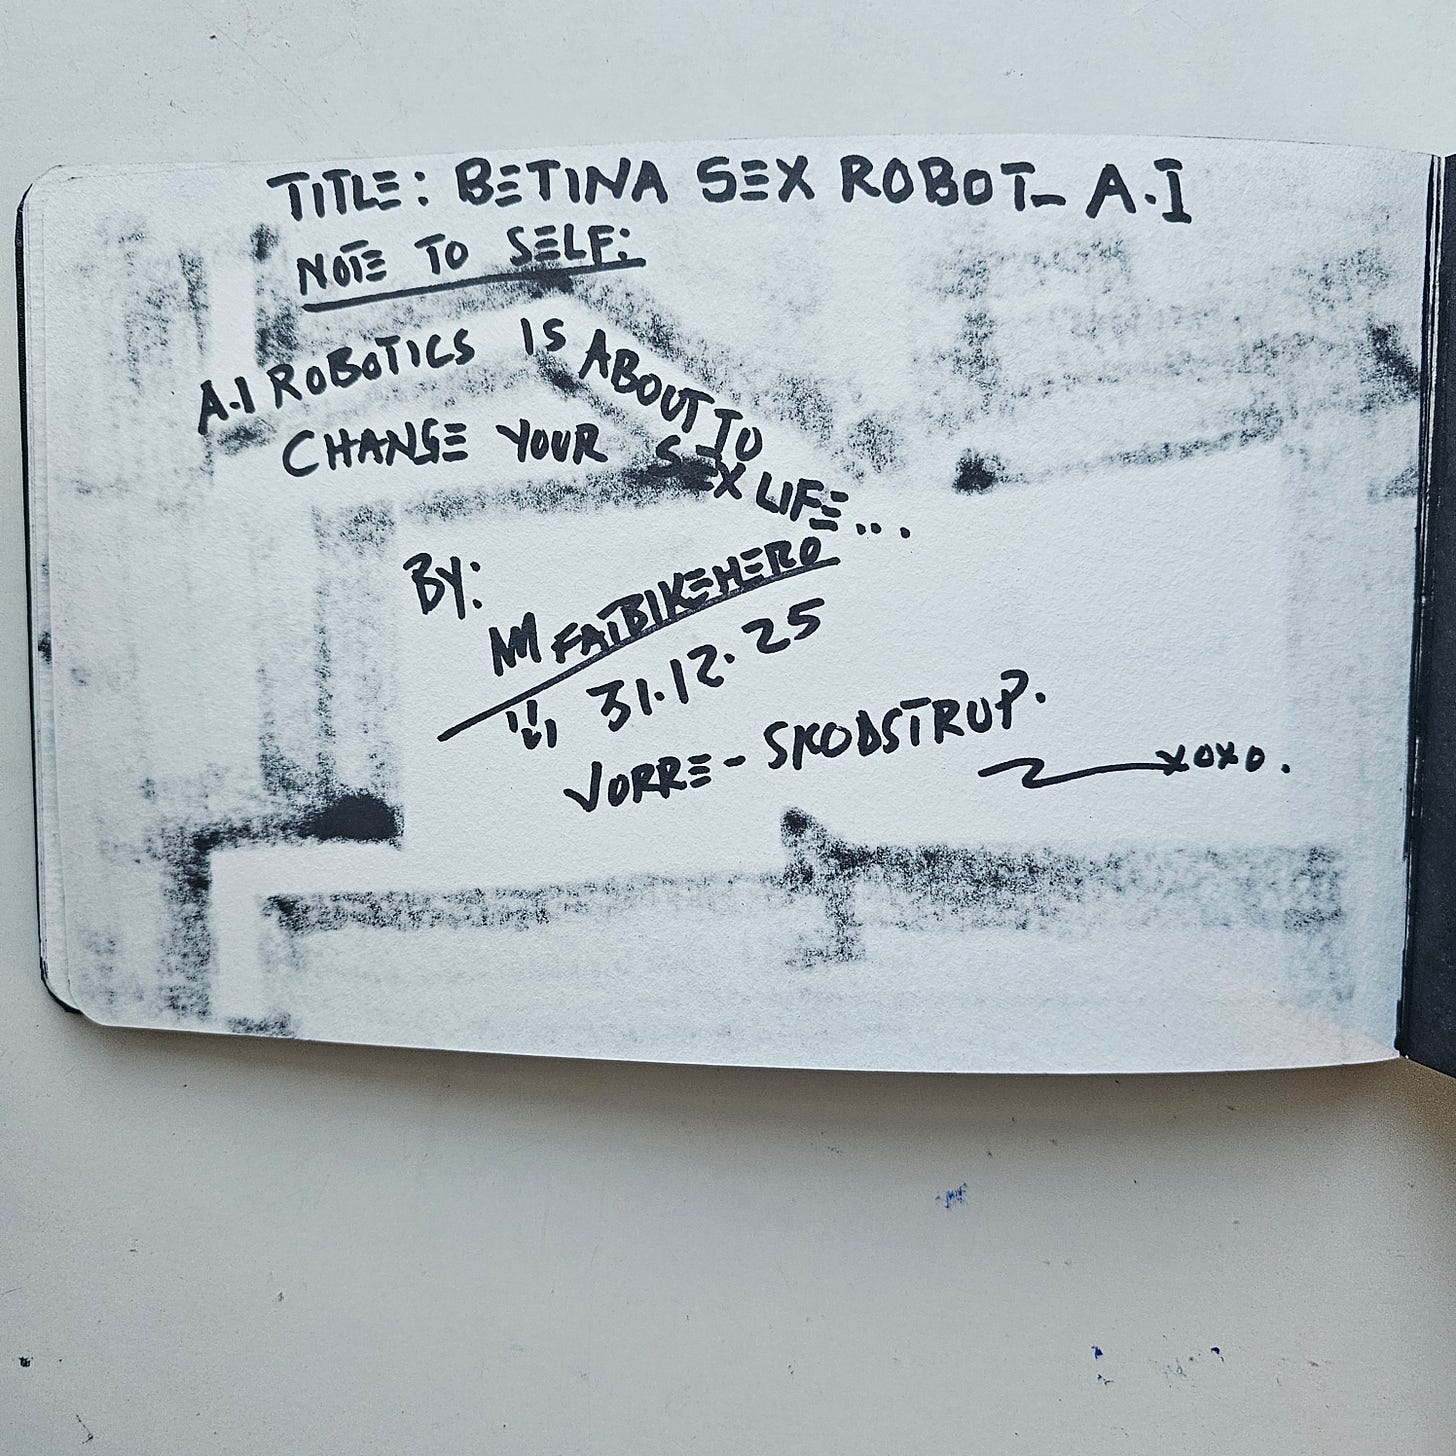 TITLE: BETINA SEX ROBOT_ A.I
NOTE TO SELF:
A.I ROBOTICS IS ABOUT TO
CHANGE YOUR SEX LIFE...
By:
FATBIKEHERO
31.12.25
VORRE- SKODSTRUP.
xoxo.